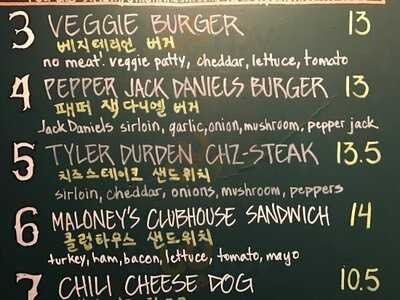 3 VEGGIE BURGER 13
베지테리언 버거
no meat. veggie patty, cheddar, lettuce, tomato
4 PEPPER JACK DANIELS BURGER 13
패퍼 잭 다니엘 버거
Jack Daniels sirloin, garlic, onion, mushroom, pepper jack
5 TYLER DURDEN CHZ-STEAK 13.5
치즈스테이크 샌드위치
sirloin, cheddar, onions, mushroom, peppers
6 MALONEY'S CLUBHOUSE SANDWICH 14
클럽하우스 샌드위치
turkey, ham, bacon, lettuce, tomato, mayo
7 CHILI CHEESE DOG 10.5